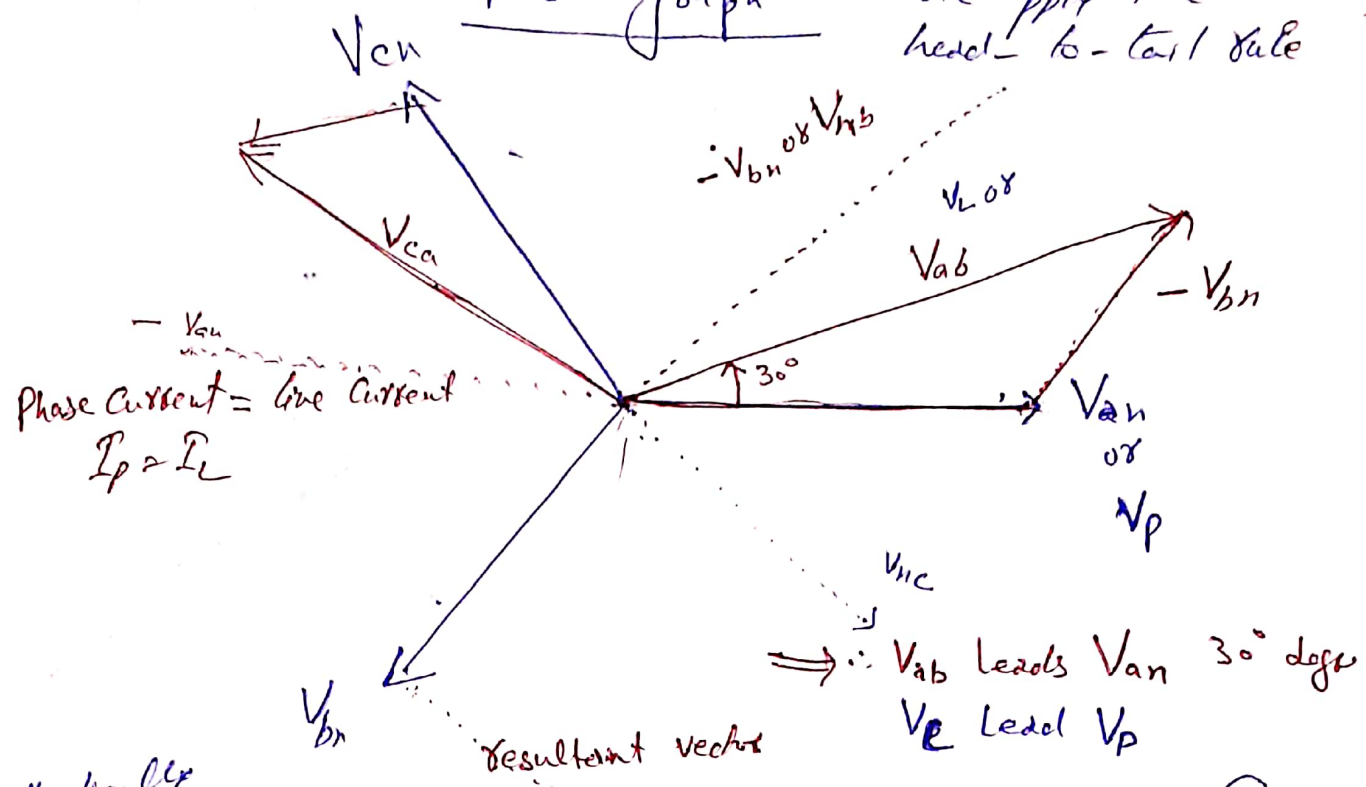 head-to-tail rule
Vcn
-Vbn or Vnb
VL or
Vab
- Vbn
Vca
- Van
30°
Phase Current = line Current
Ip = IL
Van
or
Vp
VnC
⇒ ∴ Vab leads Van 30° degr
VL Lead Vp
Vbn
resultant vector